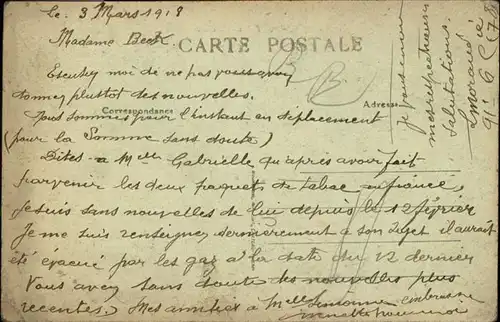 le. 3 Mars 1918
Madame Beck
CARTE POSTALE
Excusez moi de ne pas vous avoir
donner pluttot des nouvelles.
Correspondance
Adresse
Nous sommes pour l'instant en déplacement
(pour la Somme sans doute)
Dites - a Melle Gabrielle qu'après avoir fait
parvenir les deux paquets de tabac au fiancé,
je suis sans nouvelles de lui depuis le 12 février
Je me suis renseigner dernièrement a son sujet il aurait
été évacué par les gaz a la date du 12 dernier
Vous avez sans doute des nouvelles plus
recentes. Mes amitiés a Melle Simonne embrasse
je vous
mes respectueuses
salutations.
91e 6 Cie